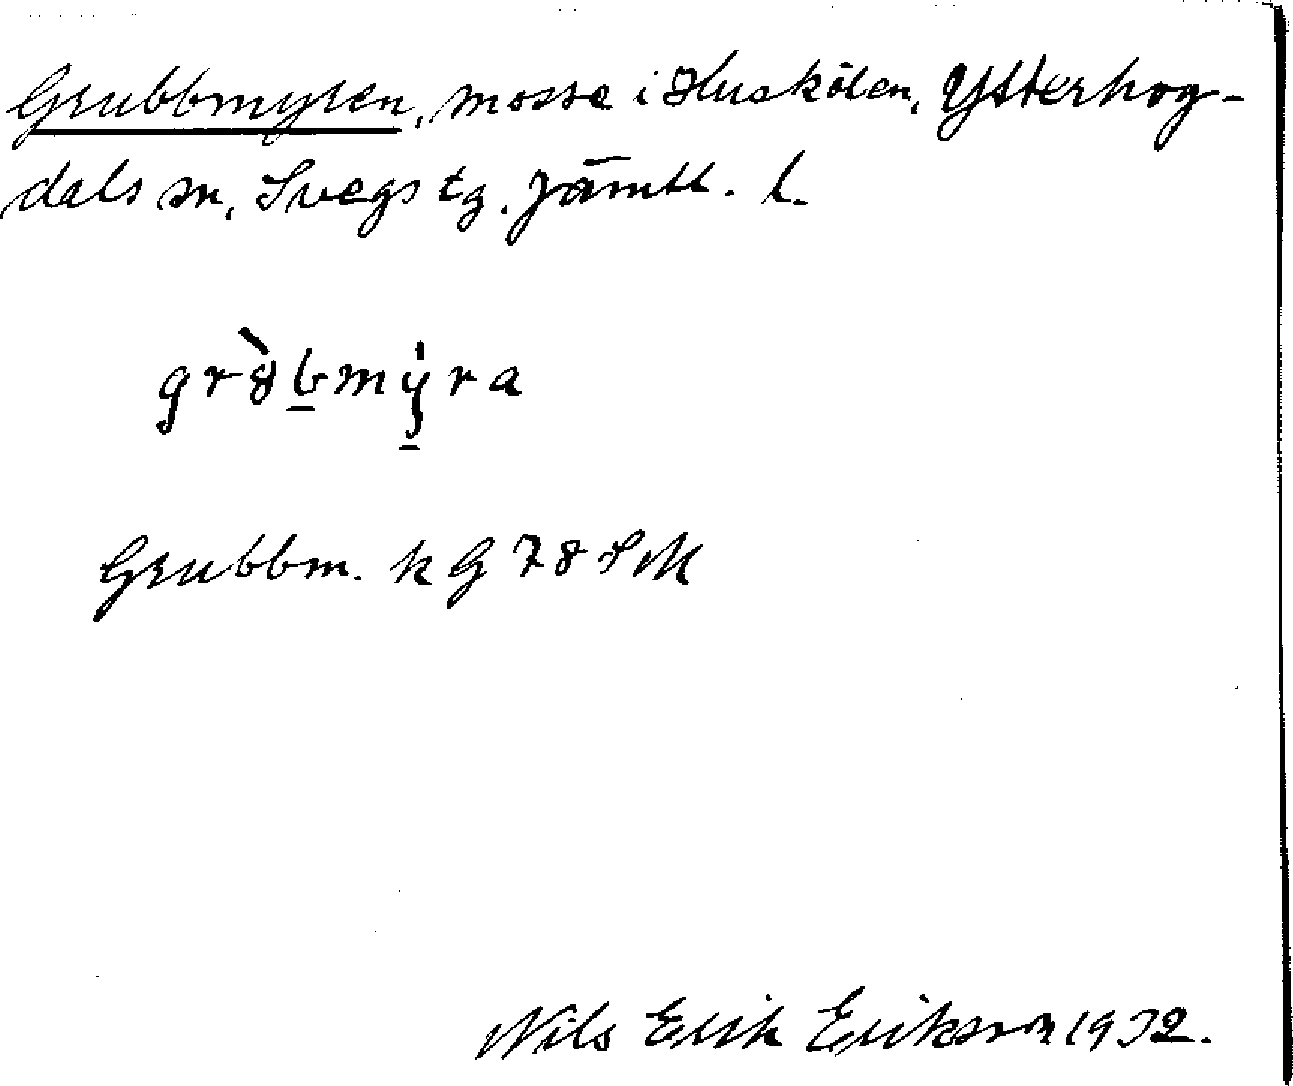 Grubbmyren, mosse i Huskölen, Ytterhog-
dals sn, Svegs tg. Jämtl. l.
gr8̀bmy̍ra
Grubbm. k G 78 SM
Nils Erik Erikson 1932.